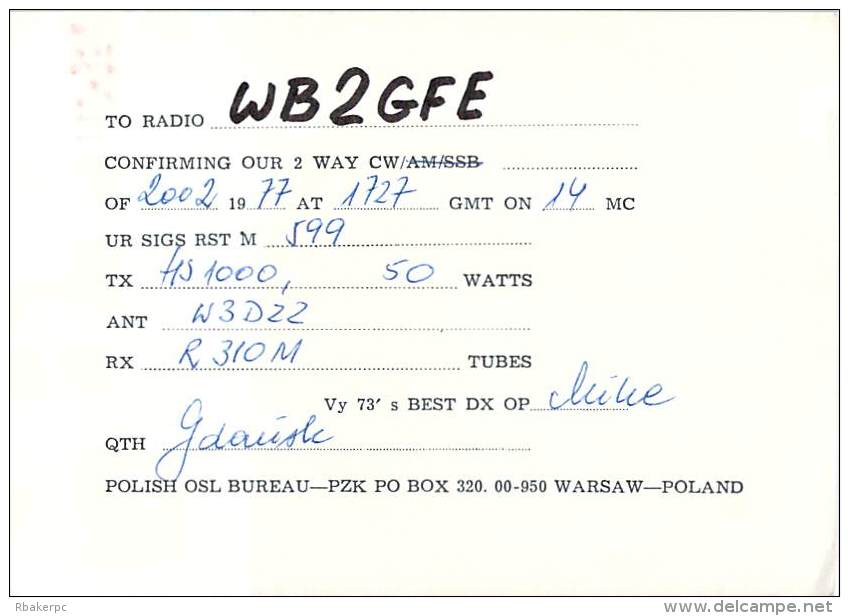 TO RADIO WB2GFE
CONFIRMING OUR 2 WAY CW/AM/SSB
OF 2002 1977 AT 1727 GMT ON 14 MC
UR SIGS RST M 599
TX HS1000, 50 WATTS
ANT W3DZZ
RX R310M TUBES
Vy 73' s BEST DX OP Mike
QTH Gdańsk
POLISH OSL BUREAU—PZK PO BOX 320. 00-950 WARSAW—POLAND
Rbakerpc
www.delcampe.net